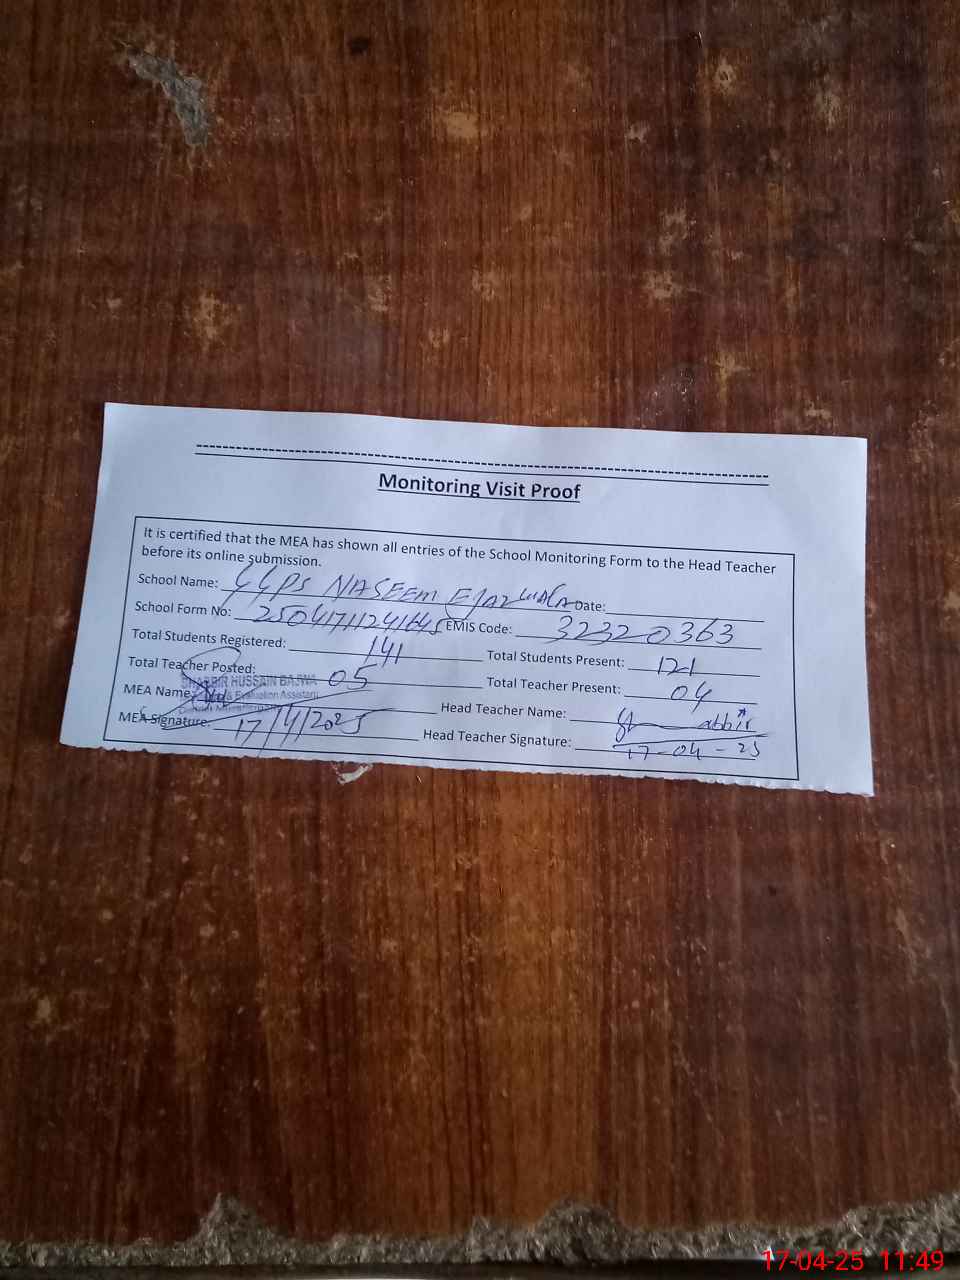 Monitoring Visit Proof
It is certified that the MEA has shown all entries of the School Monitoring Form to the Head Teacher
before its online submission.
School Name: GGPS NASEEM Ejazwala Date:
School Form No: EMIS Code: 32320363
Total Students Registered: 141 Total Students Present: 121
Total Teacher Posted: 05 Total Teacher Present: 04
SHABBIR HUSSAIN BAJWA
MEA Name: & Evaluation Assistant Head Teacher Name:
MEA Signature: 17/4/2025 Head Teacher Signature: 17-04-25
17-04-25 11:49